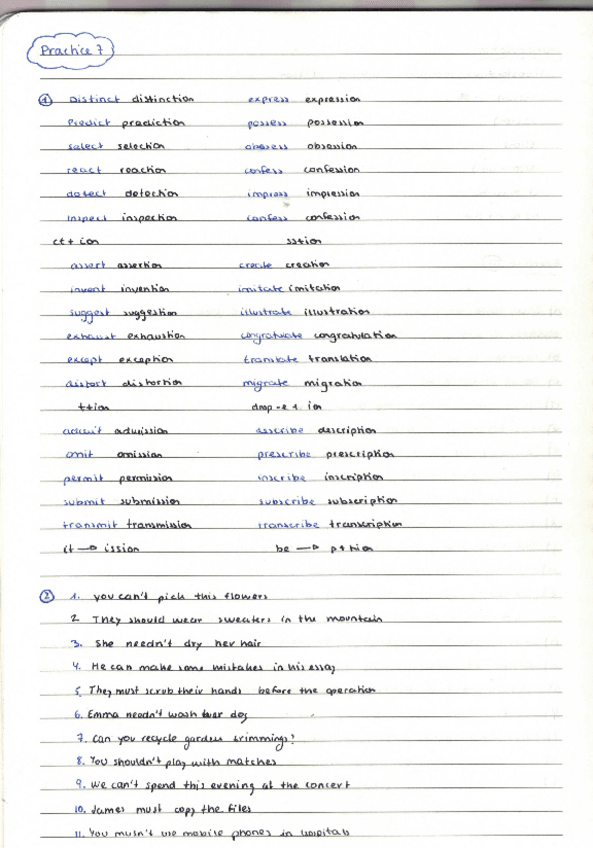 Practice 7
1 Distinct distinction express expression
Predict prediction possess possession
select selection obsess obsession
react reaction confess confession
detect detection impress impression
inspect inspection confess confession
ct + ion ss+ion
assert assertion create creation
invent invention imitate imitation
suggest suggestion illustrate illustration
exhaust exhaustion congratulate congratulation
except exception translate translation
distort distortion migrate migration
t+ion drop -e + ion
admit admission describe description
omit omission prescribe prescription
permit permission inscribe inscription
submit submission subscribe subscription
transmit transmission transcribe transcription
it → ission be → p+tion
2 1. you can't pick this flowers
2 They should wear sweaters in the mountain
3. She needn't dry her hair
4. He can make some mistakes in his essay
5. They must scrub their hands before the operation
6. Emma needn't wash dog
7. Can you recycle garden trimmings?
8. You shouldn't play with matches
9. We can't spend this evening at the concert
10. James must copy the files
11. You musn't use mobile phones in hospitals